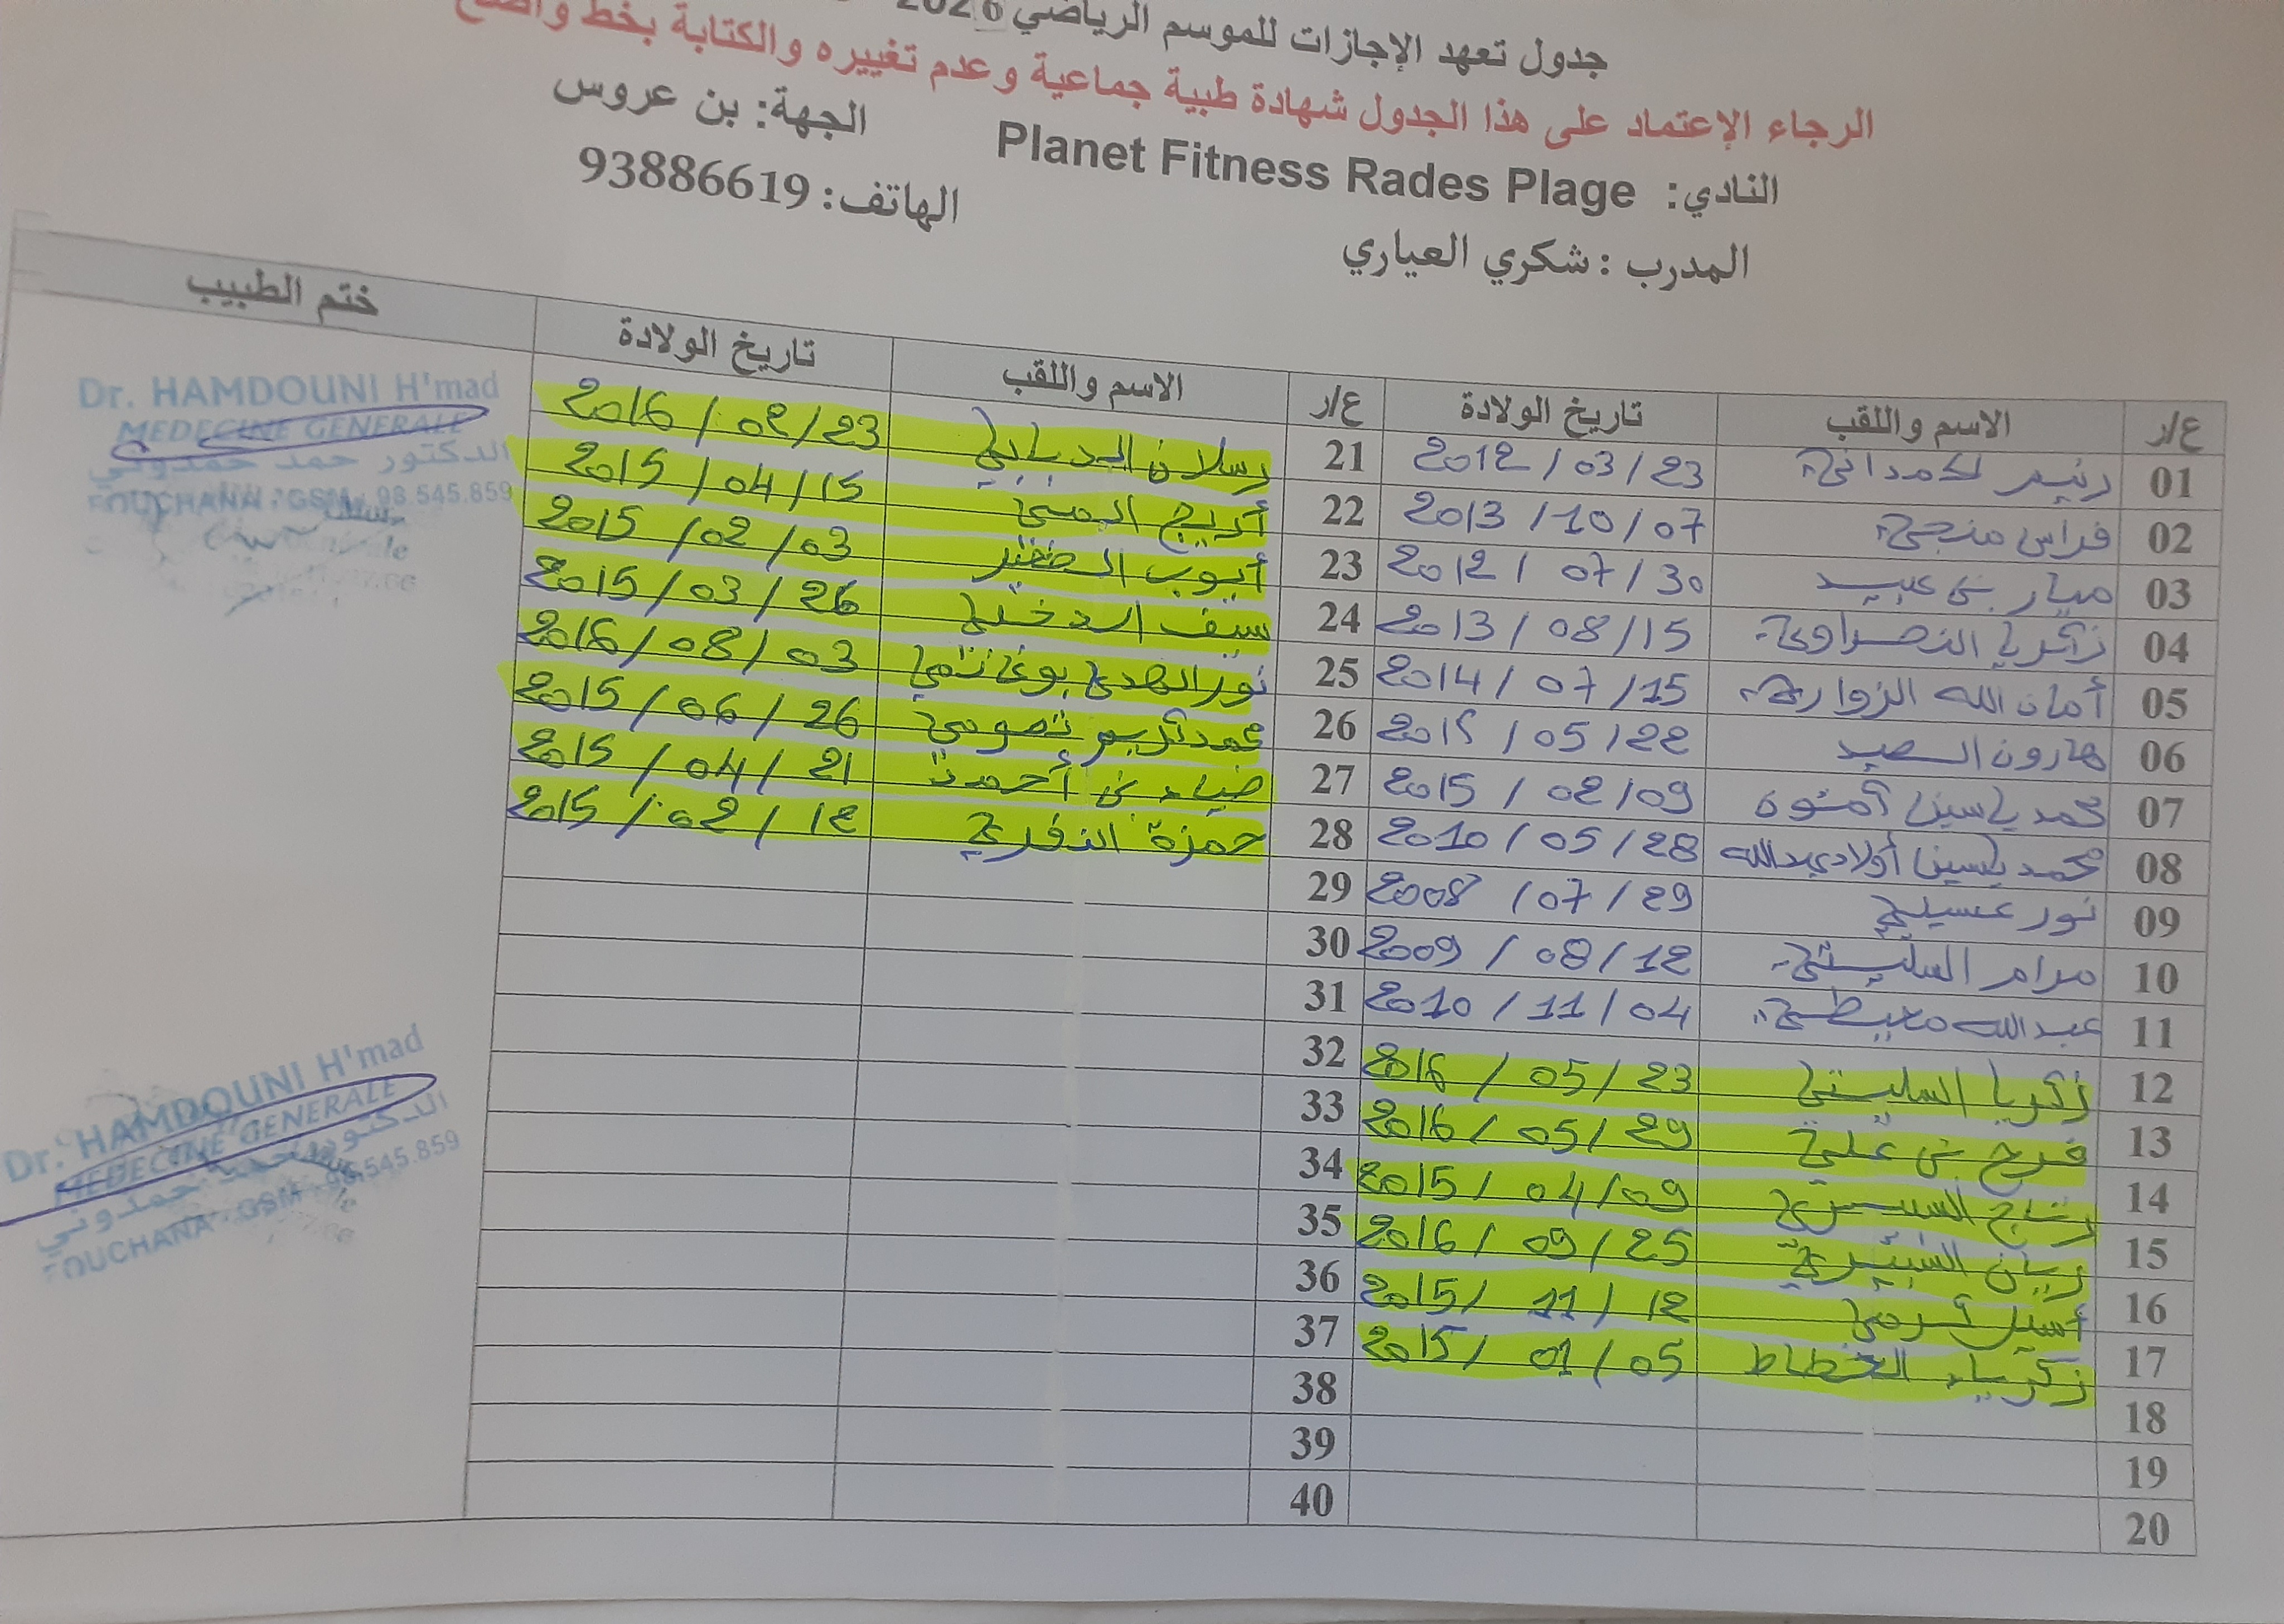 جدول تعهد الإجازات للموسم الرياضي 2026
الرجاء الإعتماد على هذا الجدول شهادة طبية جماعية وعدم تغييره والكتابة بخط واضح
النادي: Planet Fitness Rades Plage الجهة: بن عروس
المدرب : شكري العياري الهاتف: 93886619
ع/ر الاسم واللقب تاريخ الولادة ع/ر الاسم واللقب تاريخ الولادة ختم الطبيب
01 2012/03/23
02 فراس منجي 2013/10/07
03 ميار بن عبيد 2012/07/30
04 زكريا النصراوي 2013/08/15
05 أمان الله الزواري 2014/07/15
06 هارون الصيد 2015/05/22
07 محمد ياسين 2015/02/09
08 محمد ياسين أولاد عبدالله 2010/05/28
09 نور عسيلي 2008/07/29
10 مرام السليتي 2009/08/12
11 عبدالله معيطي 2010/11/04
12 زكريا السليتي 2016/05/23
13 فرح بن علي 2016/05/29
14 2015/04/09
15 ريان 2016/09/25
16 أسيل 2015/11/12
17 زكرياء الخطاط 2015/01/05
18
19
20
21 رسلان الدبابي 2016/02/23
22 أريج 2015/04/15
23 أيوب 2015/02/03
24 سيف الدخلي 2015/03/26
25 نور الهدى بوغانمي 2016/08/03
26 محمد كريم 2015/06/26
27 ضياء بن أحمد 2015/04/21
28 حمزة النفزي 2015/02/12
29
30
31
32
33
34
35
36
37
38
39
40
Dr. HAMDOUNI H'mad
MEDECINE GENERALE
الدكتور حمد حمدوني
FOUCHANA - GSM : 98.545.859
Dr. HAMDOUNI H'mad
MEDECINE GENERALE
الدكتور حمد حمدوني
FOUCHANA - GSM : 98.545.859